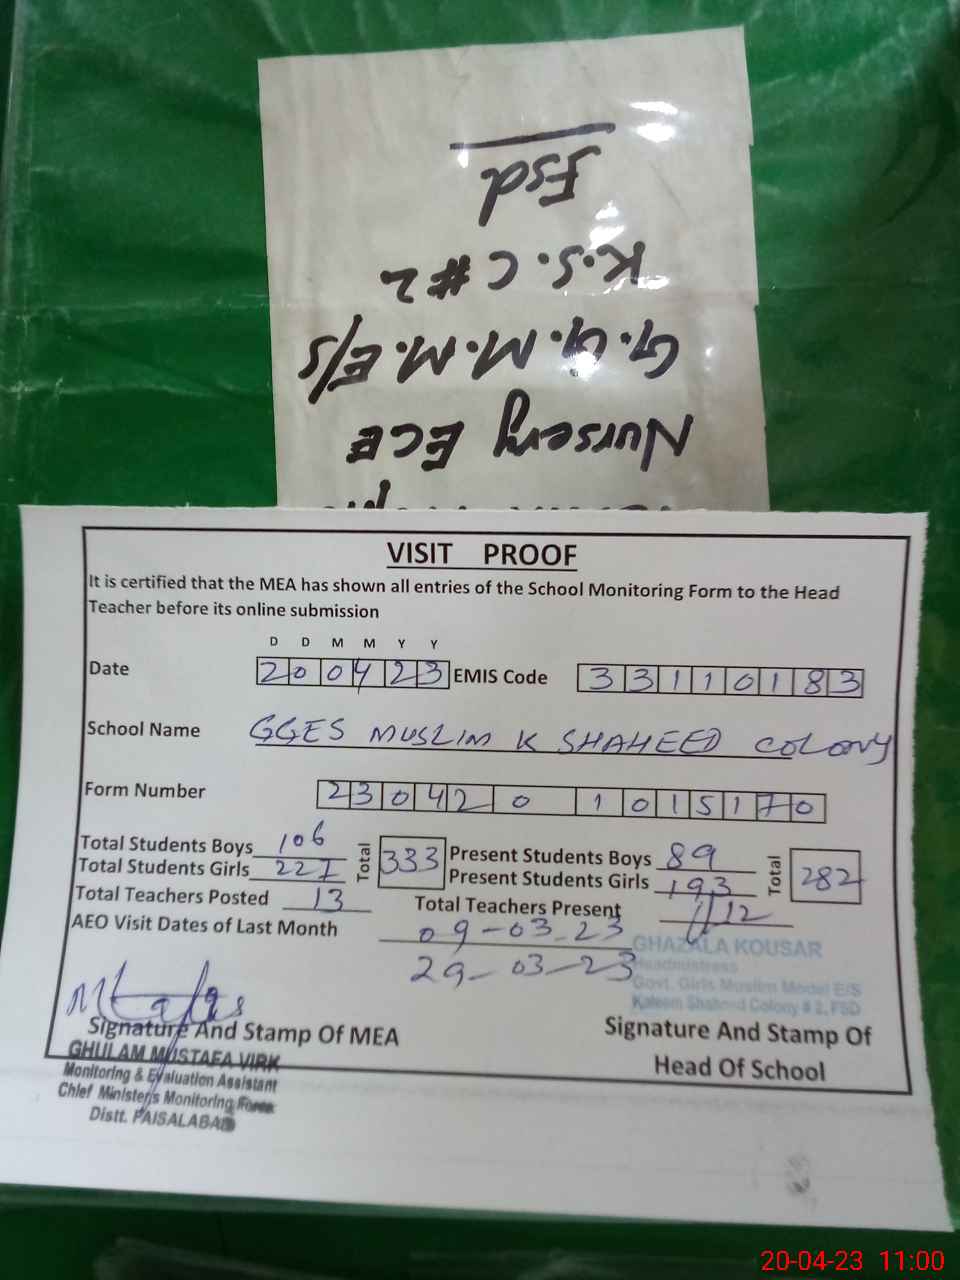 Fsd
K.S. C #2
G.G.M.M.E/S
Nursery ECE
VISIT PROOF
It is certified that the MEA has shown all entries of the School Monitoring Form to the Head
Teacher before its online submission
D D M M Y Y
Date 200423 EMIS Code 33110183
School Name GGES MUSLIM K SHAHEED COLONY
Form Number 23042 0 1015170
Total Students Boys 106 Total 333 Present Students Boys 89 Total 282
Total Students Girls 227 Present Students Girls 193
Total Teachers Posted 13 Total Teachers Present 12
AEO Visit Dates of Last Month 09-03-23
29-03-23
GHAZALA KOUSAR
Headmistress
Govt. Girls Muslim Model E/S
Kaleem Shaheed Colony # 2, FSD
Signature And Stamp Of MEA
Signature And Stamp Of
Head Of School
GHULAM MUSTAFA VIRK
Monitoring & Evaluation Assistant
Chief Minister's Monitoring Force
Distt. FAISALABAD
20-04-23 11:00